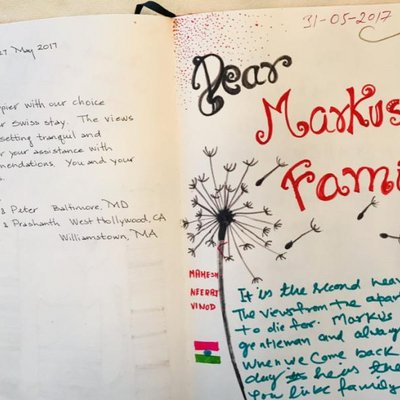 27 May 2017
pier with our choice
r Swiss stay. The views
setting tranquil and
r your assistance with
mendations. You and your
s & Peter Baltimore, MD
& Prashanth West Hollywood, CA
Williamstown, MA
31-05-2017
Dear
Markus
Fami
MAHESH
NEERAJ
VINOD
It is the second hea
The views from the apar
to die for. Markus
gentleman and alway
When we come back
day is the
you like family